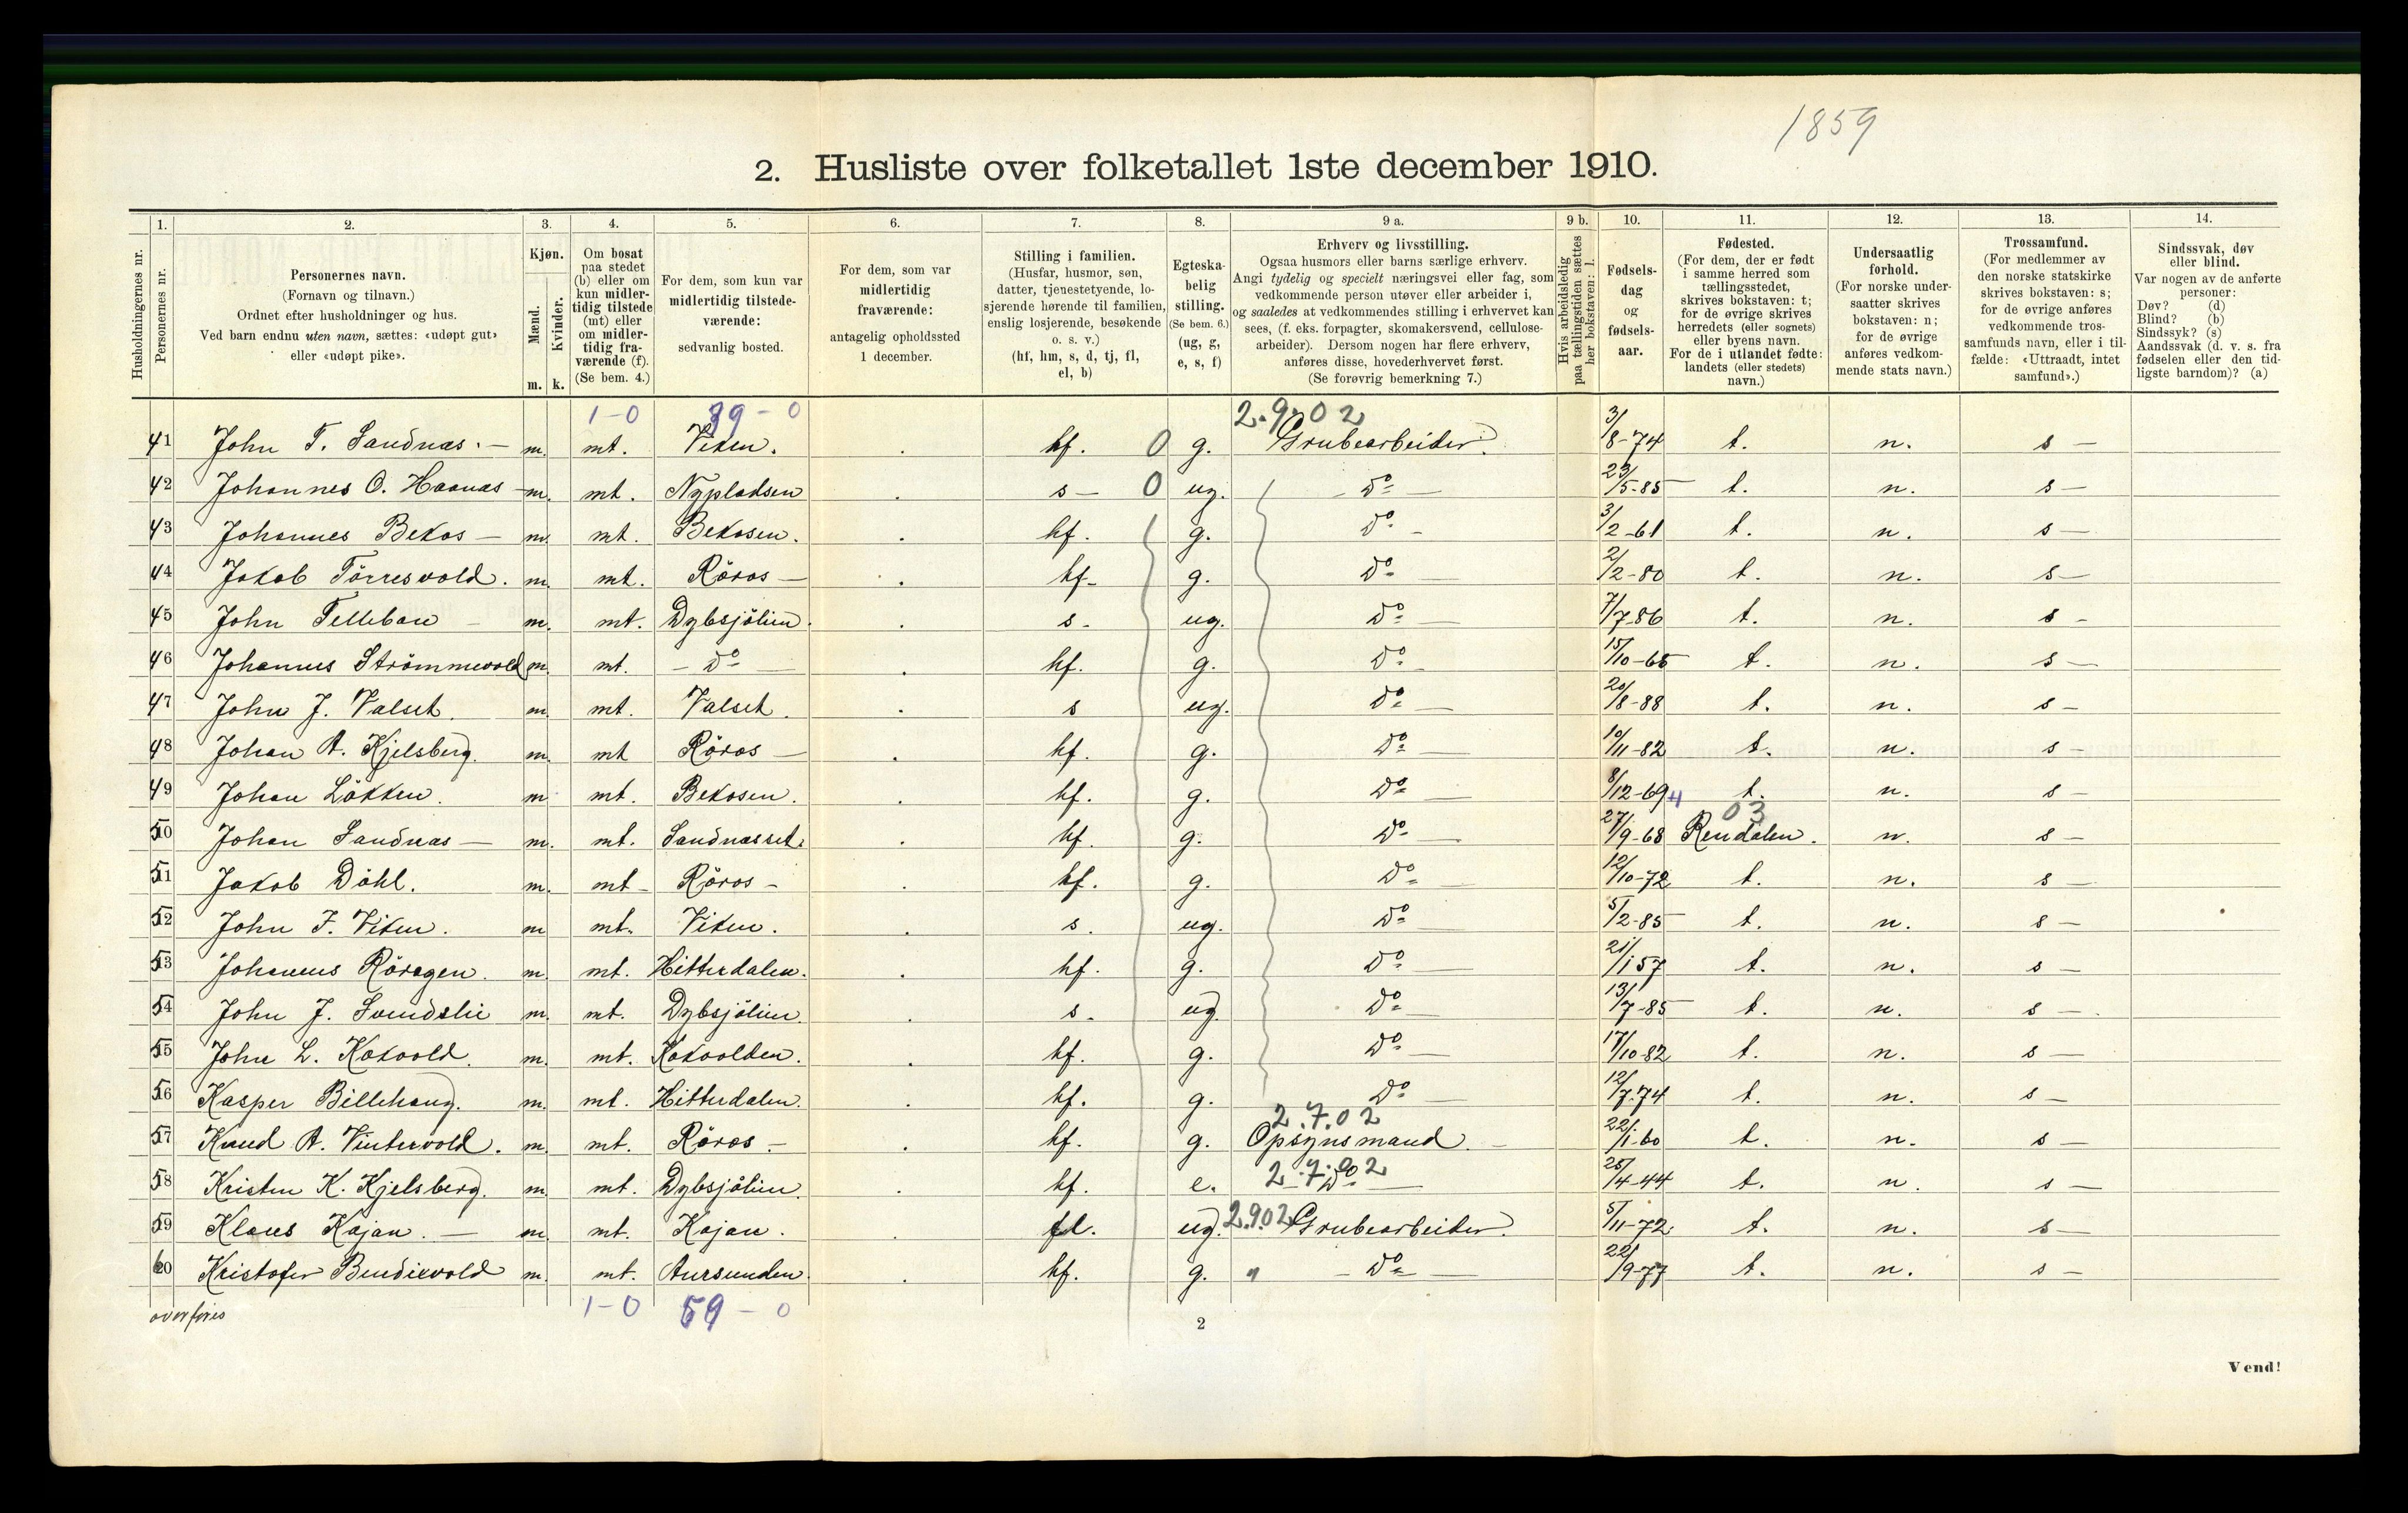 1859
2. Husliste over folketallet 1ste december 1910.
Husholdningernes nr.
1. Personernes nr.
2. Personernes navn.
(Fornavn og tilnavn.)
Ordnet efter husholdninger og hus.
Ved barn endnu uten navn, sættes: «udøpt gut»
eller «udøpt pike».
3. Kjøn.
Mænd. Kvinder.
m. k.
4. Om bosat
paa stedet
(b) eller om
kun midler-
tidig tilstede
(mt) eller
om midler-
tidig fra-
værende (f).
(Se bem. 4.)
5. For dem, som kun var
midlertidig tilstede-
værende:
sedvanlig bosted.
6. For dem, som var
midlertidig
fraværende:
antagelig opholdssted
1 december.
7. Stilling i familien.
(Husfar, husmor, søn,
datter, tjenestetyende, lo-
sjerende hørende til familien,
enslig losjerende, besøkende
o. s. v.)
(hf, hm, s, d, tj, fl,
el, b)
8. Egteska-
belig
stilling.
(Se bem. 6.)
(ug, g,
e, s, f)
9 a. Erhverv og livsstilling.
Ogsaa husmors eller barns særlige erhverv.
Angi tydelig og specielt næringsvei eller fag, som
vedkommende person utøver eller arbeider i,
og saaledes at vedkommendes stilling i erhvervet kan
sees, (f. eks. forpagter, skomakersvend, cellulose-
arbeider). Dersom nogen har flere erhverv,
anføres disse, hovederhvervet først.
(Se forøvrig bemerkning 7.)
9 b. Hvis arbeidsledig
paa tællingstiden sættes
her bokstaven: l.
10. Fødsels-
dag
og
fødsels-
aar.
11. Fødested.
(For dem, der er født
i samme herred som
tællingsstedet,
skrives bokstaven: t;
for de øvrige skrives
herredets (eller sognets)
eller byens navn.
For de i utlandet fødte:
landets (eller stedets)
navn.)
12. Undersaatlig
forhold.
(For norske under-
saatter skrives
bokstaven: n;
for de øvrige
anføres vedkom-
mende stats navn.)
13. Trossamfund.
(For medlemmer av
den norske statskirke
skrives bokstaven: s;
for de øvrige anføres
vedkommende tros-
samfunds navn, eller i til-
fælde: «Uttraadt, intet
samfund».)
14. Sindssvak, døv
eller blind.
Var nogen av de anførte
personer:
Døv? (d)
Blind? (b)
Sindssyk? (s)
Aandssvak (d. v. s. fra
fødselen eller den tid-
ligste barndom)? (a)
1-0 39-0 2.9.02
41 John T. Sandnas. m. mt. Viken. hf. 0 g. Grubearbeider. 3/8-74 t. n. s
42 Johannes O. Haanas m. mt. Nypladsen s 0 ug. Do 23/5-85 t. n. s
43 Johannes Bekos m. mt. Bekosen. hf. g. Do 3/2-61 t. n. s
44 Jakob Törresvold. m. mt. Röros hf. g. Do 2/2-80 t. n. s
45 John Tellebon m. mt. Dybsjölien. s. ug. Do 7/7-86 t. n. s
46 Johannes Strömmevold m. mt. Do hf. g. Do 15/10-65 t. n. s
47 John J. Valset. m. mt. Valset. s ug. Do 20/8-88 t. n. s
48 Johan A. Kjelsberg. m. mt Röros hf. g. Do 10/11-82 t. n. s
49 Johan Lökken. m mt. Bekosen. hf. g. Do 8/12-69 t. n. s
4 03
50 Johan Sandnas m. mt. Sandnasset. hf. g. Do 27/9-68 Rendalen. n. s
51 Jakob Döhl. m. mt Röros hf. g. Do 12/10-72 t. n. s
52 John J. Viken. m mt. Viken. s. ug. Do 5/2-85 t. n. s
53 Johannes Röragen. m. mt. Hitterdalen. hf. g. Do 21/1 57 t. n. s
54 John J. Svendsli m. mt. Dybsjölien. s. ug Do 13/7-85 t. n. s
55 John L. Kokvold. m. mt. Kokvolden. hf. g. Do 17/10-82 t. n. s
56 Kasper Billehaug. m. mt. Hitterdalen. hf. g. Do 12/7-74 t. n. s
2.7.02
57 Knud A. Vintervold. m. mt. Röros hf. g. Opsynsmand. 22/1-60 t. n. s
2.7.02
58 Kristen K. Kjelsberg. m. mt. Dybsjölien. hf. e. Do 25/4-44 t. n. s
59 Klaus Kojan. m. mt. Kojan. fl. ug. 2.9.02 Grubearbeider. 5/11-72 t. n. s
60 Kristofer Bendixvold m. mt. Aursunden. hf. g. " Do 22/9-77 t. n. s
overføres 1-0 59-0
2
Vend!